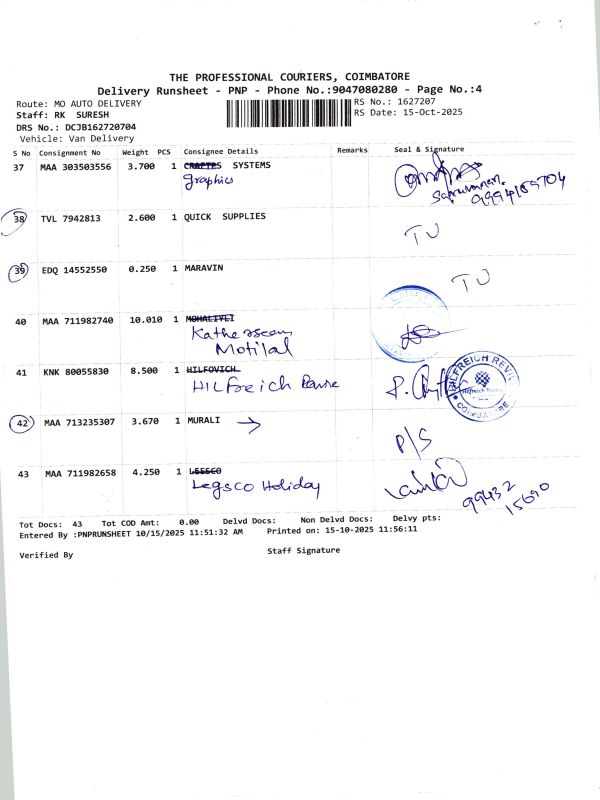 THE PROFESSIONAL COURIERS, COIMBATORE
Delivery Runsheet - PNP - Phone No.:9047080280 - Page No.:4
Route: MO AUTO DELIVERY RS No.: 1627207
Staff: RK SURESH RS Date: 15-Oct-2025
DRS No.: DCJB162720704
Vehicle: Van Delivery
S No Consignment No Weight PCS Consignee Details Remarks Seal & Signature
37 MAA 303503556 3.700 1 SYSTEMS
graphics
Saravanan.
38 TVL 7942813 2.600 1 QUICK SUPPLIES
TU
39 EDQ 14552550 0.250 1 MARAVIN
TU
40 MAA 711982740 10.010 1
Motilal
41 KNK 80055830 8.500 1 HILFOVICH
HILFreich
HILFREICH
COIMBATORE
42 MAA 713235307 3.670 1 MURALI →
P/S
43 MAA 711982658 4.250 1 LEESCO
Legsco Holiday
99432
15690
Tot Docs: 43 Tot COD Amt: 0.00 Delvd Docs: Non Delvd Docs: Delvy pts:
Entered By :PNPRUNSHEET 10/15/2025 11:51:32 AM Printed on: 15-10-2025 11:56:11
Verified By Staff Signature